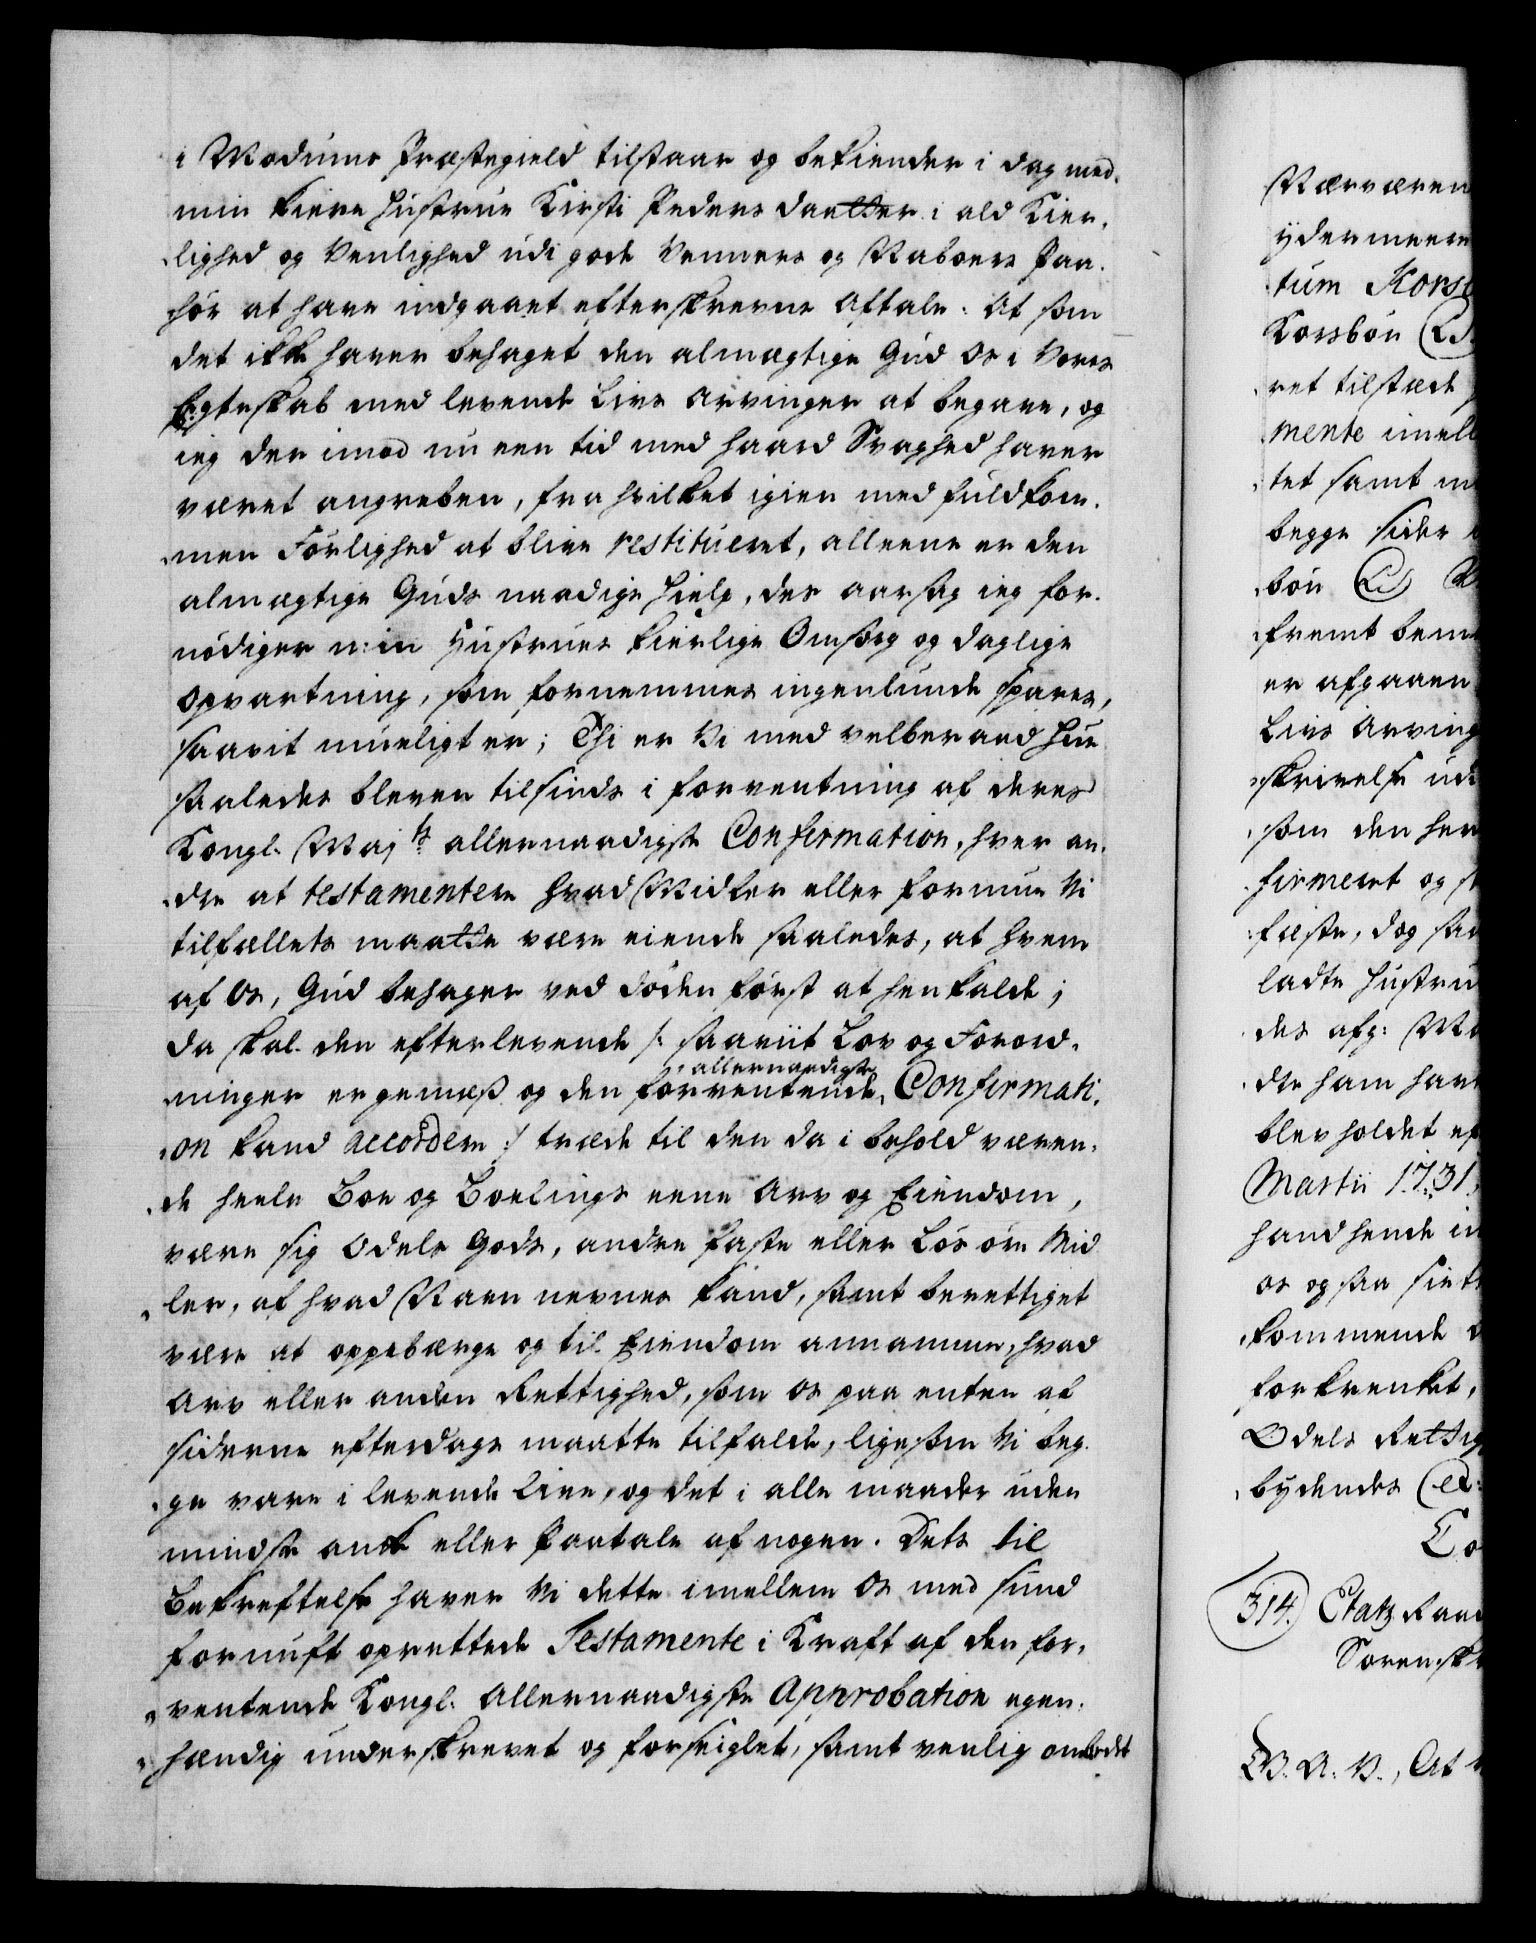 i Modums Præstegield tilstaar og bekiender i dag med
min kiere Hustrue Kirsti Peders daatter i ald Kier-
lighed og Venlighed udi gode Venners og Naboers Paa-
hør at have indgaaet efterskrevne Aftale: At som
det ikke haver behaget den almægtige Gud os i Vores
Egteskab med levende Livs Arvinger at begave, og
ieg der imod nu een tid med haard Svaghed haver
været angreben, fra hvilket igien med fuldkom-
men Førlighed at blive restitueret, alleene er den
almægtige Guds naadige Hielp, der aarsag ieg for-
nødiger min Hustrues kierlige Omsorg og daglige
Opvartning, som fornemmes ingenlunde spares,
saavit mueligt er; Thi er Vi med velberaad Hue
saaledes bleven tilsinds i forventning af deres
Kongl. Maj:ts allernaadigste Confirmation, hver an-
dre at testamentere hvad Midler eller formue Vi
tilfællets maatte være eiende saaledes, at hvem
af os, Gud behager ved døden først at henkalde,
da skal den efterlevende /: saaviit Lov og Forord-
ninger er gemæs og den forventende allernaadigste Confirmati-
on kand accordere :/ træde til den da i behold væren-
de heele Boe og Boelings eene Arv og Eiendom,
være sig Odels Gods, andre faste eller Løs øre Mid-
ler, af hvad Navn nevnes kand, samt berettiget
være at oppebærge og til Eiendom annamme, hvad
Arv eller anden Rettighed, som os paa enten af
siderne efterdags maatte tilfalde, ligesom Vi beg-
ge vare i levende Live, og det i alle maader uden
mindste anke eller Paatale af nogen. Dets til
Bekreftelse haver Vi dette imellem os med sund
fornuft oprettede Testamente i Kraft af den for-
ventende Kongl. Allernaadigste Approbation egen-
hændig underskrevet og forseiglet, samt venlig ombedet
Nærværen
ydermeere
tum Kors
Korsbøn
ret tilstæde
mente imell
tet samt m
begge sider
bøn
fremt bem
er afgaaen
Livs Arving
skrivelse ud
som den her
firmeret og
fæste, dog saa
ladte Hustru
des afg: Ma
dre ham hav
blev holdet ef
Martii 1731,
hand hende in
os og saa siet
kommende
forkrenket,
Odels Rettig
bydendes
Co
314. Etatz Raad
Sorenskr
G. A. V., At